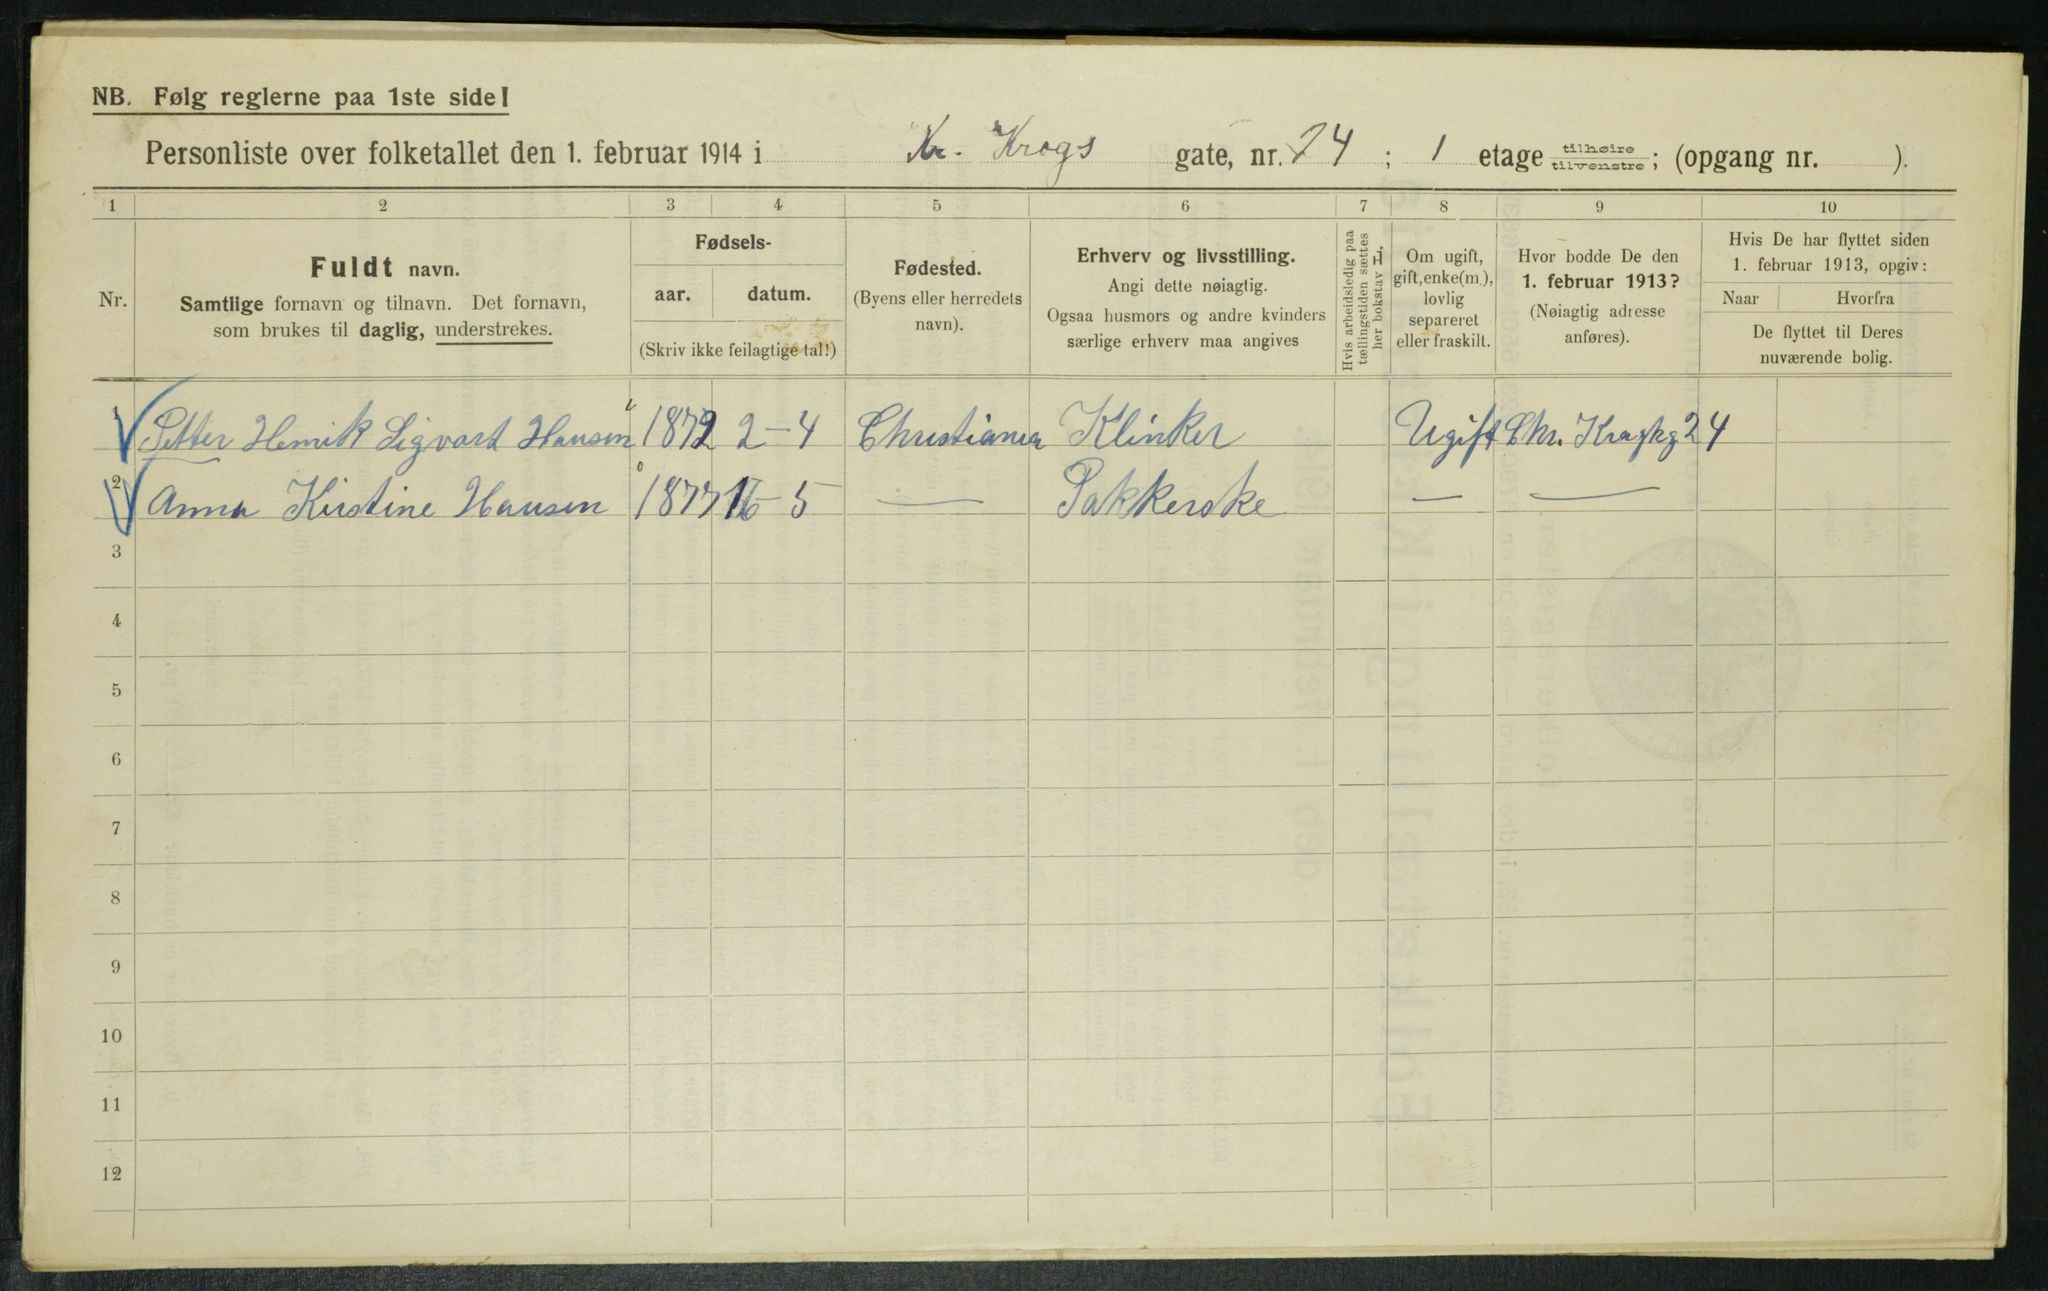 NB. Følg reglerne paa 1ste side!
Personliste over folketallet den 1. februar 1914 i Kr. Krogs gate, nr. 24 ; 1 etage tilhøire tilvenstre ; (opgang nr. ).
1 2 3 4 5 6 7 8 9 10
Nr.
Fuldt navn.
Samtlige fornavn og tilnavn. Det fornavn,
som brukes til daglig, understrekes.
Fødsels-
aar. datum.
(Skriv ikke feilagtige tal!)
Fødested.
(Byens eller herredets
navn).
Erhverv og livsstilling.
Angi dette nøiagtig.
Ogsaa husmors og andre kvinders
særlige erhverv maa angives
Hvis arbeidsledig paa
tællingstiden sættes
her bokstav L,
Om ugift,
gift, enke(m.),
lovlig
separeret
eller fraskilt.
Hvor bodde De den
1. februar 1913?
(Nøiagtig adresse
anføres).
Hvis De har flyttet siden
1. februar 1913, opgiv:
Naar Hvorfra
De flyttet til Deres
nuværende bolig.
1 Petter Henrik Sigvart Hansen 1872 2-4 Christiania Klinker Ugift Chr. Krogsg 24
2 Anna Kirstine Hansen 1877 16-5 — Pakkerske — —
3
4
5
6
7
8
9
10
11
12